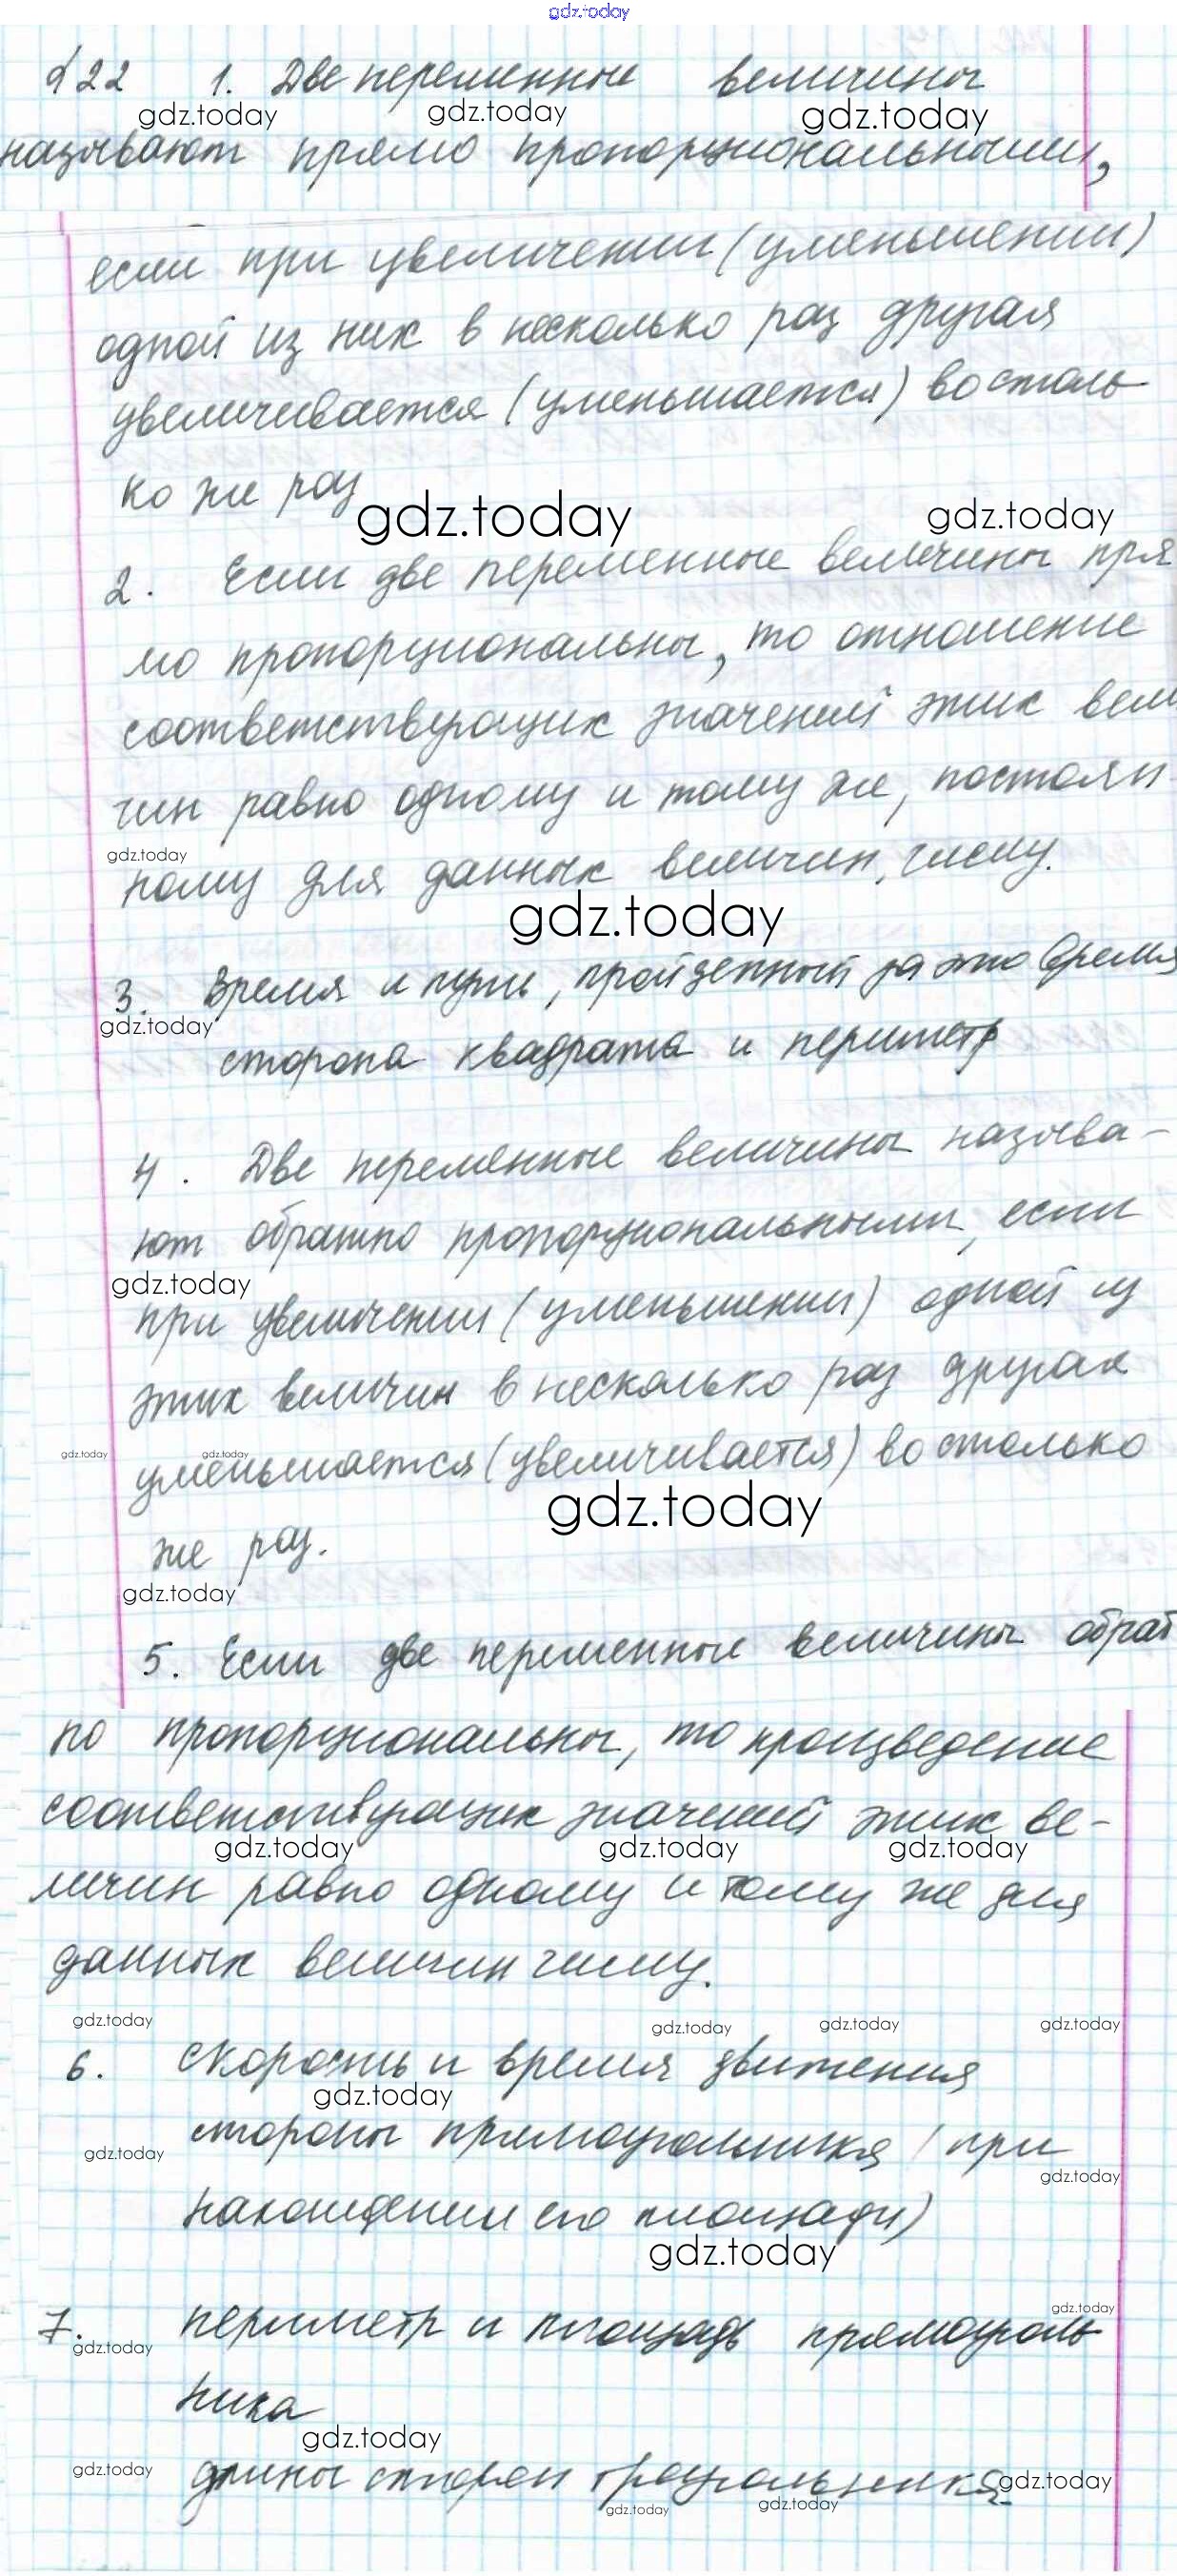 gdz.today
§22 1. Две переменные величины
gdz.today gdz.today gdz.today
называют прямо пропорциональными,
если при увеличении (уменьшении)
одной из них в несколько раз другая
увеличивается (уменьшается) во столь
ко же раз
gdz.today gdz.today
2. Если две переменные величины пря
мо пропорциональны, то отношение
соответствующих значений этих вели
чин равно одному и тому же, постоян
gdz.today
ному для данных величин, числу.
gdz.today
3. Время и путь, пройденный за это время
gdz.today
сторона квадрата и периметр
4. Две переменные величины называ-
ют обратно пропорциональными, если
gdz.today
при увеличении (уменьшении) одной из
этих величин в несколько раз другая
gdz.today gdz.today
уменьшается (увеличивается) во столько
gdz.today
же раз.
gdz.today
5. Если две переменные величины обрат
но пропорциональны, то произведение
соответствующих значений этих ве-
gdz.today gdz.today gdz.today
личин равно одному и тому же для
данных величин числу.
gdz.today gdz.today gdz.today gdz.today
6. скорость и время движения
gdz.today
стороны прямоугольника (при
gdz.today gdz.today
нахождении его площади)
gdz.today
7. периметр и площадь прямоуголь
gdz.today gdz.today
ника
gdz.today
длины сторон треугольника
gdz.today gdz.today
gdz.today gdz.today